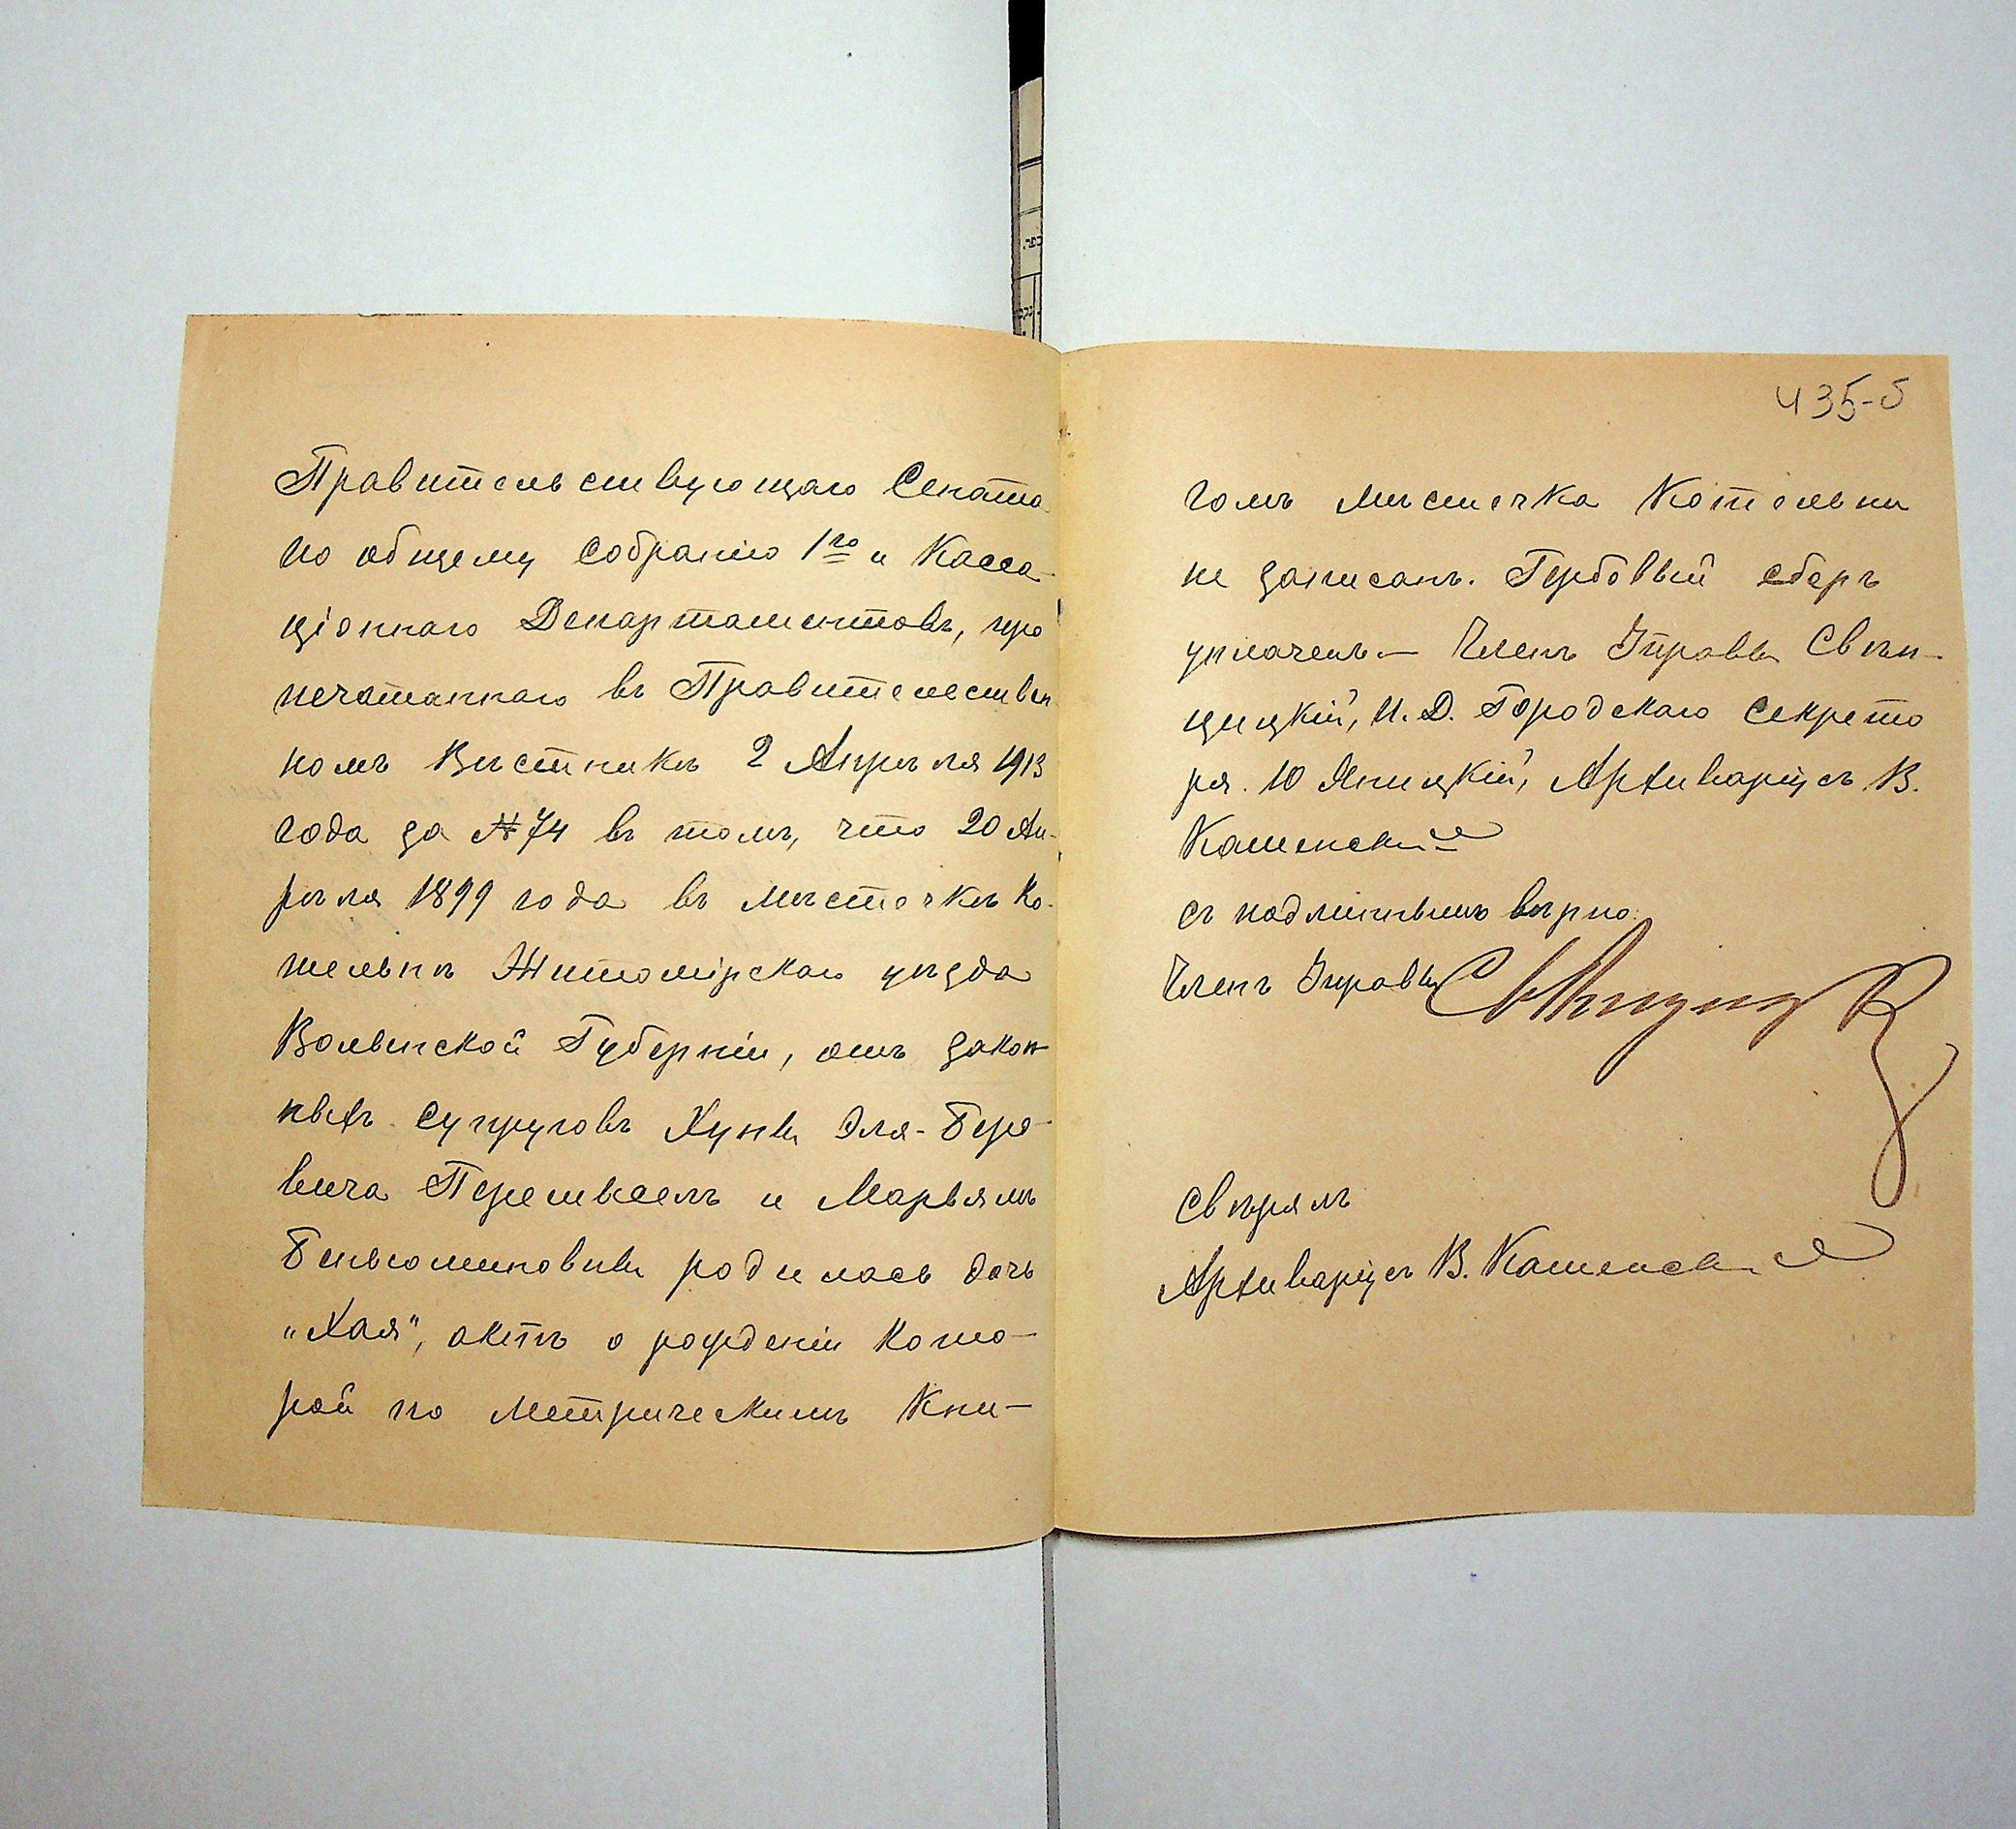 Правительствующаго Сената
по общему собранію 1го и Касса-
ціоннаго Департаментовъ, про
печатаннаго въ Правительствен
номъ Вѣстникѣ 2 Апрѣля 1913
года за № 74 въ томъ, что 20 Ап-
рѣля 1899 года въ мѣстечкѣ Ко-
тельнѣ Житомірскаго уѣзда
Волынской Губерніи, отъ закон
ныхъ супруговъ Хуны Эля-Беро
вича и Марьямъ
Беньюминовны родилась дочь
„Хая", актъ о рожденіи кото-
рой по метрическимъ кни-
435-б
гомъ мѣстечка Котельни
не записанъ. Гербовый сборъ
уплаченъ— Членъ Управы Свѣн-
цицкій, И. Д. Городского Секрета
ря. Ю Яницкій, Архиваріусъ В.
Каменскій
съ подлиннымъ вѣрно.
Членъ Управы
Свѣрялъ
Архиваріусъ В. Каменскій